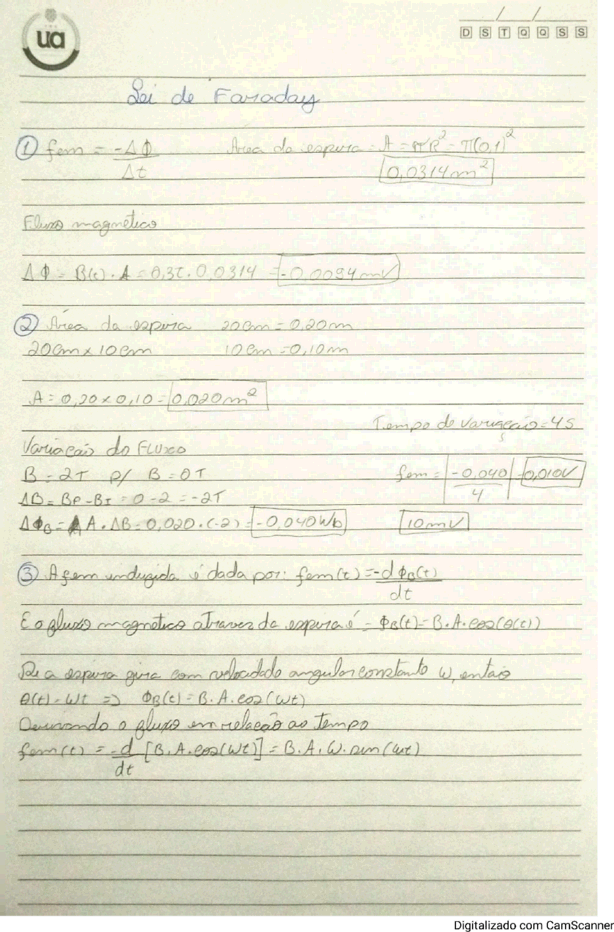 ua
D S T Q Q S S
Lei de Faraday
① fem = -ΔΦ/Δt Área da espira = A = πR² = π(0,1)²
0,0314m²
Fluxo magnético
ΔΦ = B(t) . A = 0,3t . 0,0314 = -0,0094mV
② Área da espira 20cm = 0,20m
20cm x 10cm 10cm = 0,10m
A = 0,20 x 0,10 = 0,020m²
Tempo de variação = 4s
Variação do Fluxo
B = 2T p/ B = 0T fem = |-0,040/4| = 0,010V
ΔB = BF - BI = 0 - 2 = -2T
ΔΦB = A . ΔB = 0,020 . (-2) = -0,040Wb 10mV
③ A fem induzida é dada por: fem(t) = -dΦB(t)/dt
E o fluxo magnético através da espira é = ΦB(t) = B . A . cos(θ(t))
Se a espira gira com velocidade angular constante W, então
θ(t) = Wt => ΦB(t) = B . A . cos(Wt)
Derivando o fluxo em relação ao tempo
fem(t) = -d/dt [B . A . cos(Wt)] = B . A . W . sen(wt)
Digitalizado com CamScanner